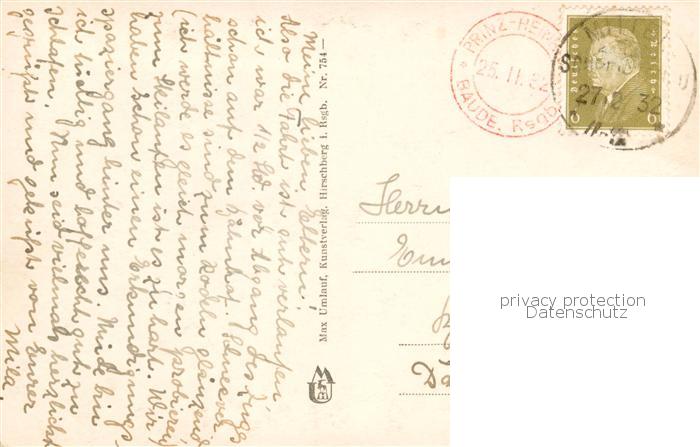 Meine lieben Eltern!
Also die Fahrt ist gut verlaufen,
ich war 1/2 Std vor Abgang des Zuges
schon auf dem Bahnhof. Schneever
hältnisse sind zum Rodeln glänzend
(ich werde es gleich morgen probieren)
zum Skilaufen ist es zu hart. Wir
haben schon einen Erkundigungs
spaziergang hinter uns. Müde bin
ich tüchtig und hoffe recht gut zu
schlafen. Nun seid vielmals herzlichst
gegrüsst und geküsst von Eurer
Mila.
Max Umlauf, Kunstverlag, Hirschberg i. Rsgb. Nr. 754
M
U
PRINZ-HEIN
25. II. 32
BAUDE. Rsgb.
Deutsches Reich
6 6
27 2 32
Herrn
privacy protection
Datenschutz